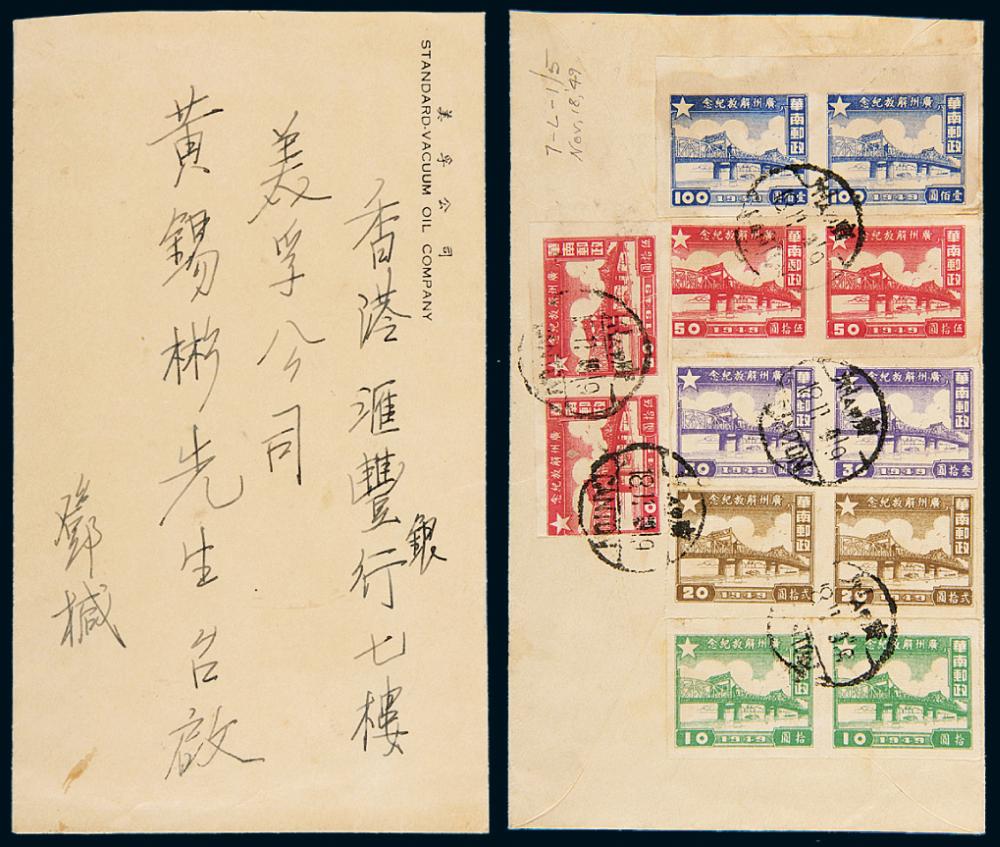 美孚公司
STANDARD-VACUUM OIL COMPANY
香港滙豐銀行七樓
美孚公司
黃錫彬先生台啟
鄧棫
7-L-1/5
Nov, 18, '49
廣州解放紀念
華南郵政
100
1949
壹佰圓
廣州解放紀念
華南郵政
100
1949
壹佰圓
廣州解放紀念
華南郵政
50
1949
伍拾圓
廣州解放紀念
華南郵政
50
1949
伍拾圓
廣州解放紀念
華南郵政
50
1949
伍拾圓
廣州解放紀念
華南郵政
50
伍拾圓
廣州解放紀念
華南郵政
30
1949
叁拾圓
廣州解放紀念
華南郵政
30
1949
叁拾圓
廣州解放紀念
華南郵政
20
1949
貳拾圓
廣州解放紀念
華南郵政
20
1949
貳拾圓
廣州解放紀念
華南郵政
10
1949
拾圓
廣州解放紀念
華南郵政
10
1949
拾圓
CANTON